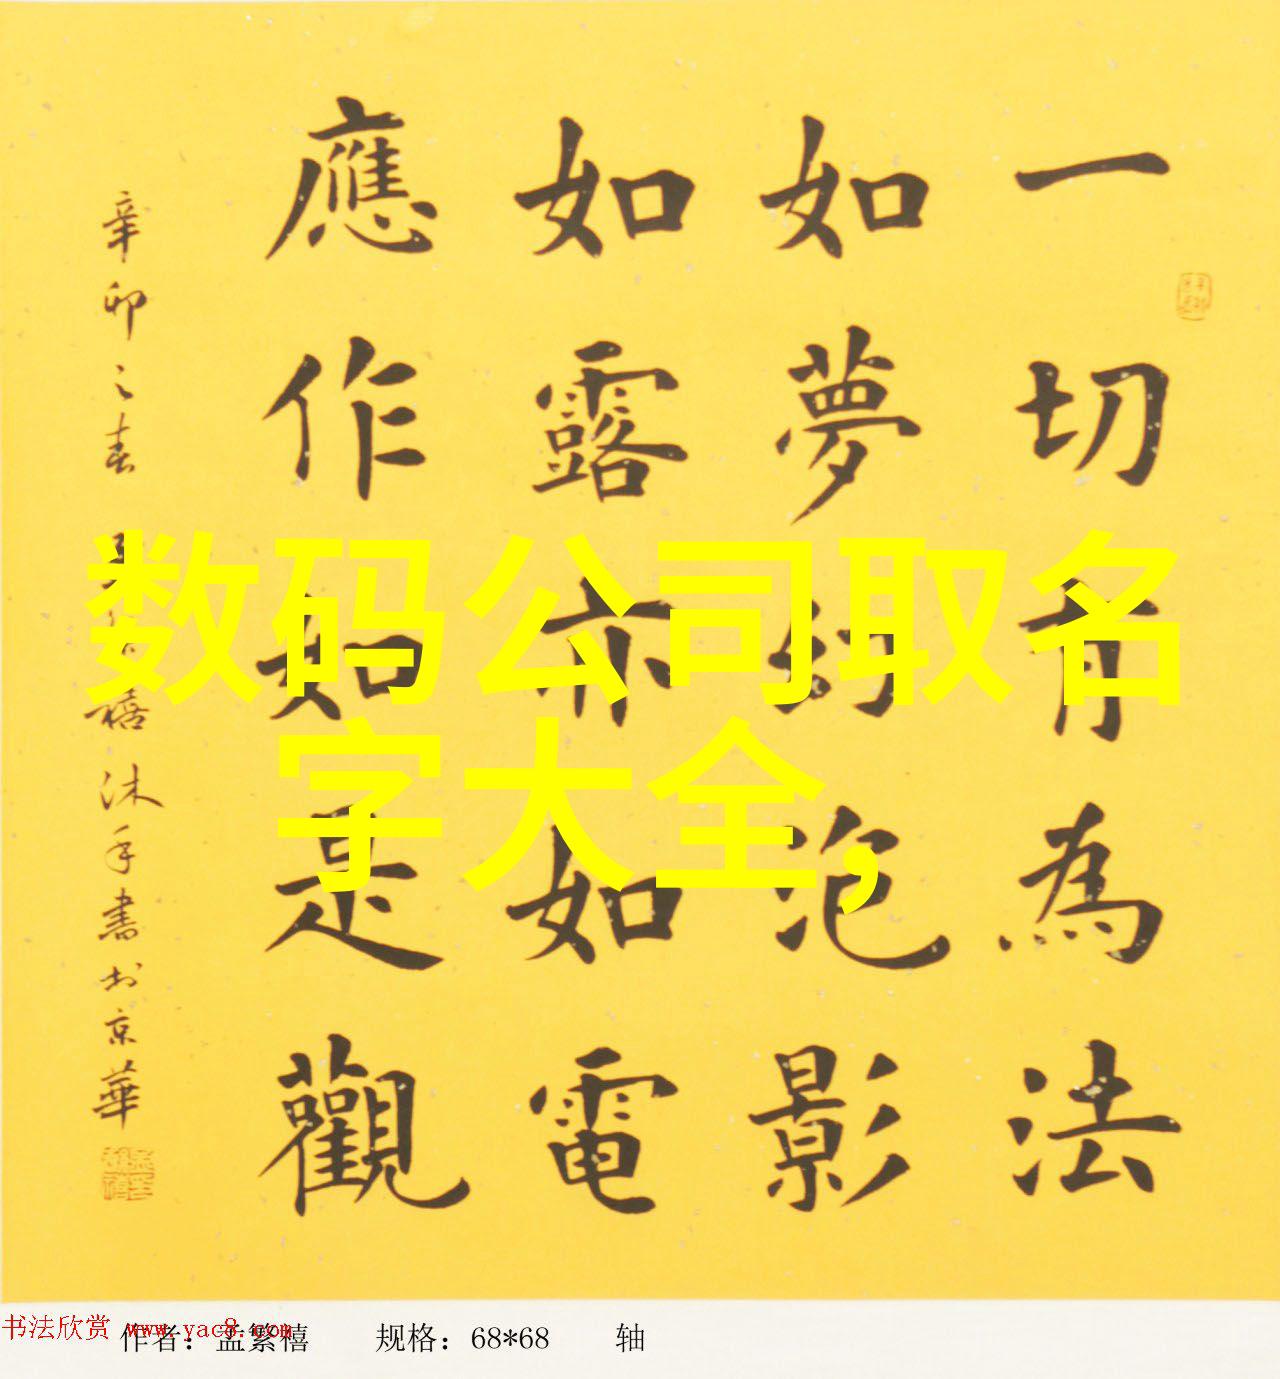 一切有為法
如夢幻泡影
如露亦如電
應作如是觀
辛卯之春 孟繁禧沐手書於京華
数码公司取名
字大全,
书法欣赏 www.yac8.com
作者：孟繁禧 规格：68*68 轴